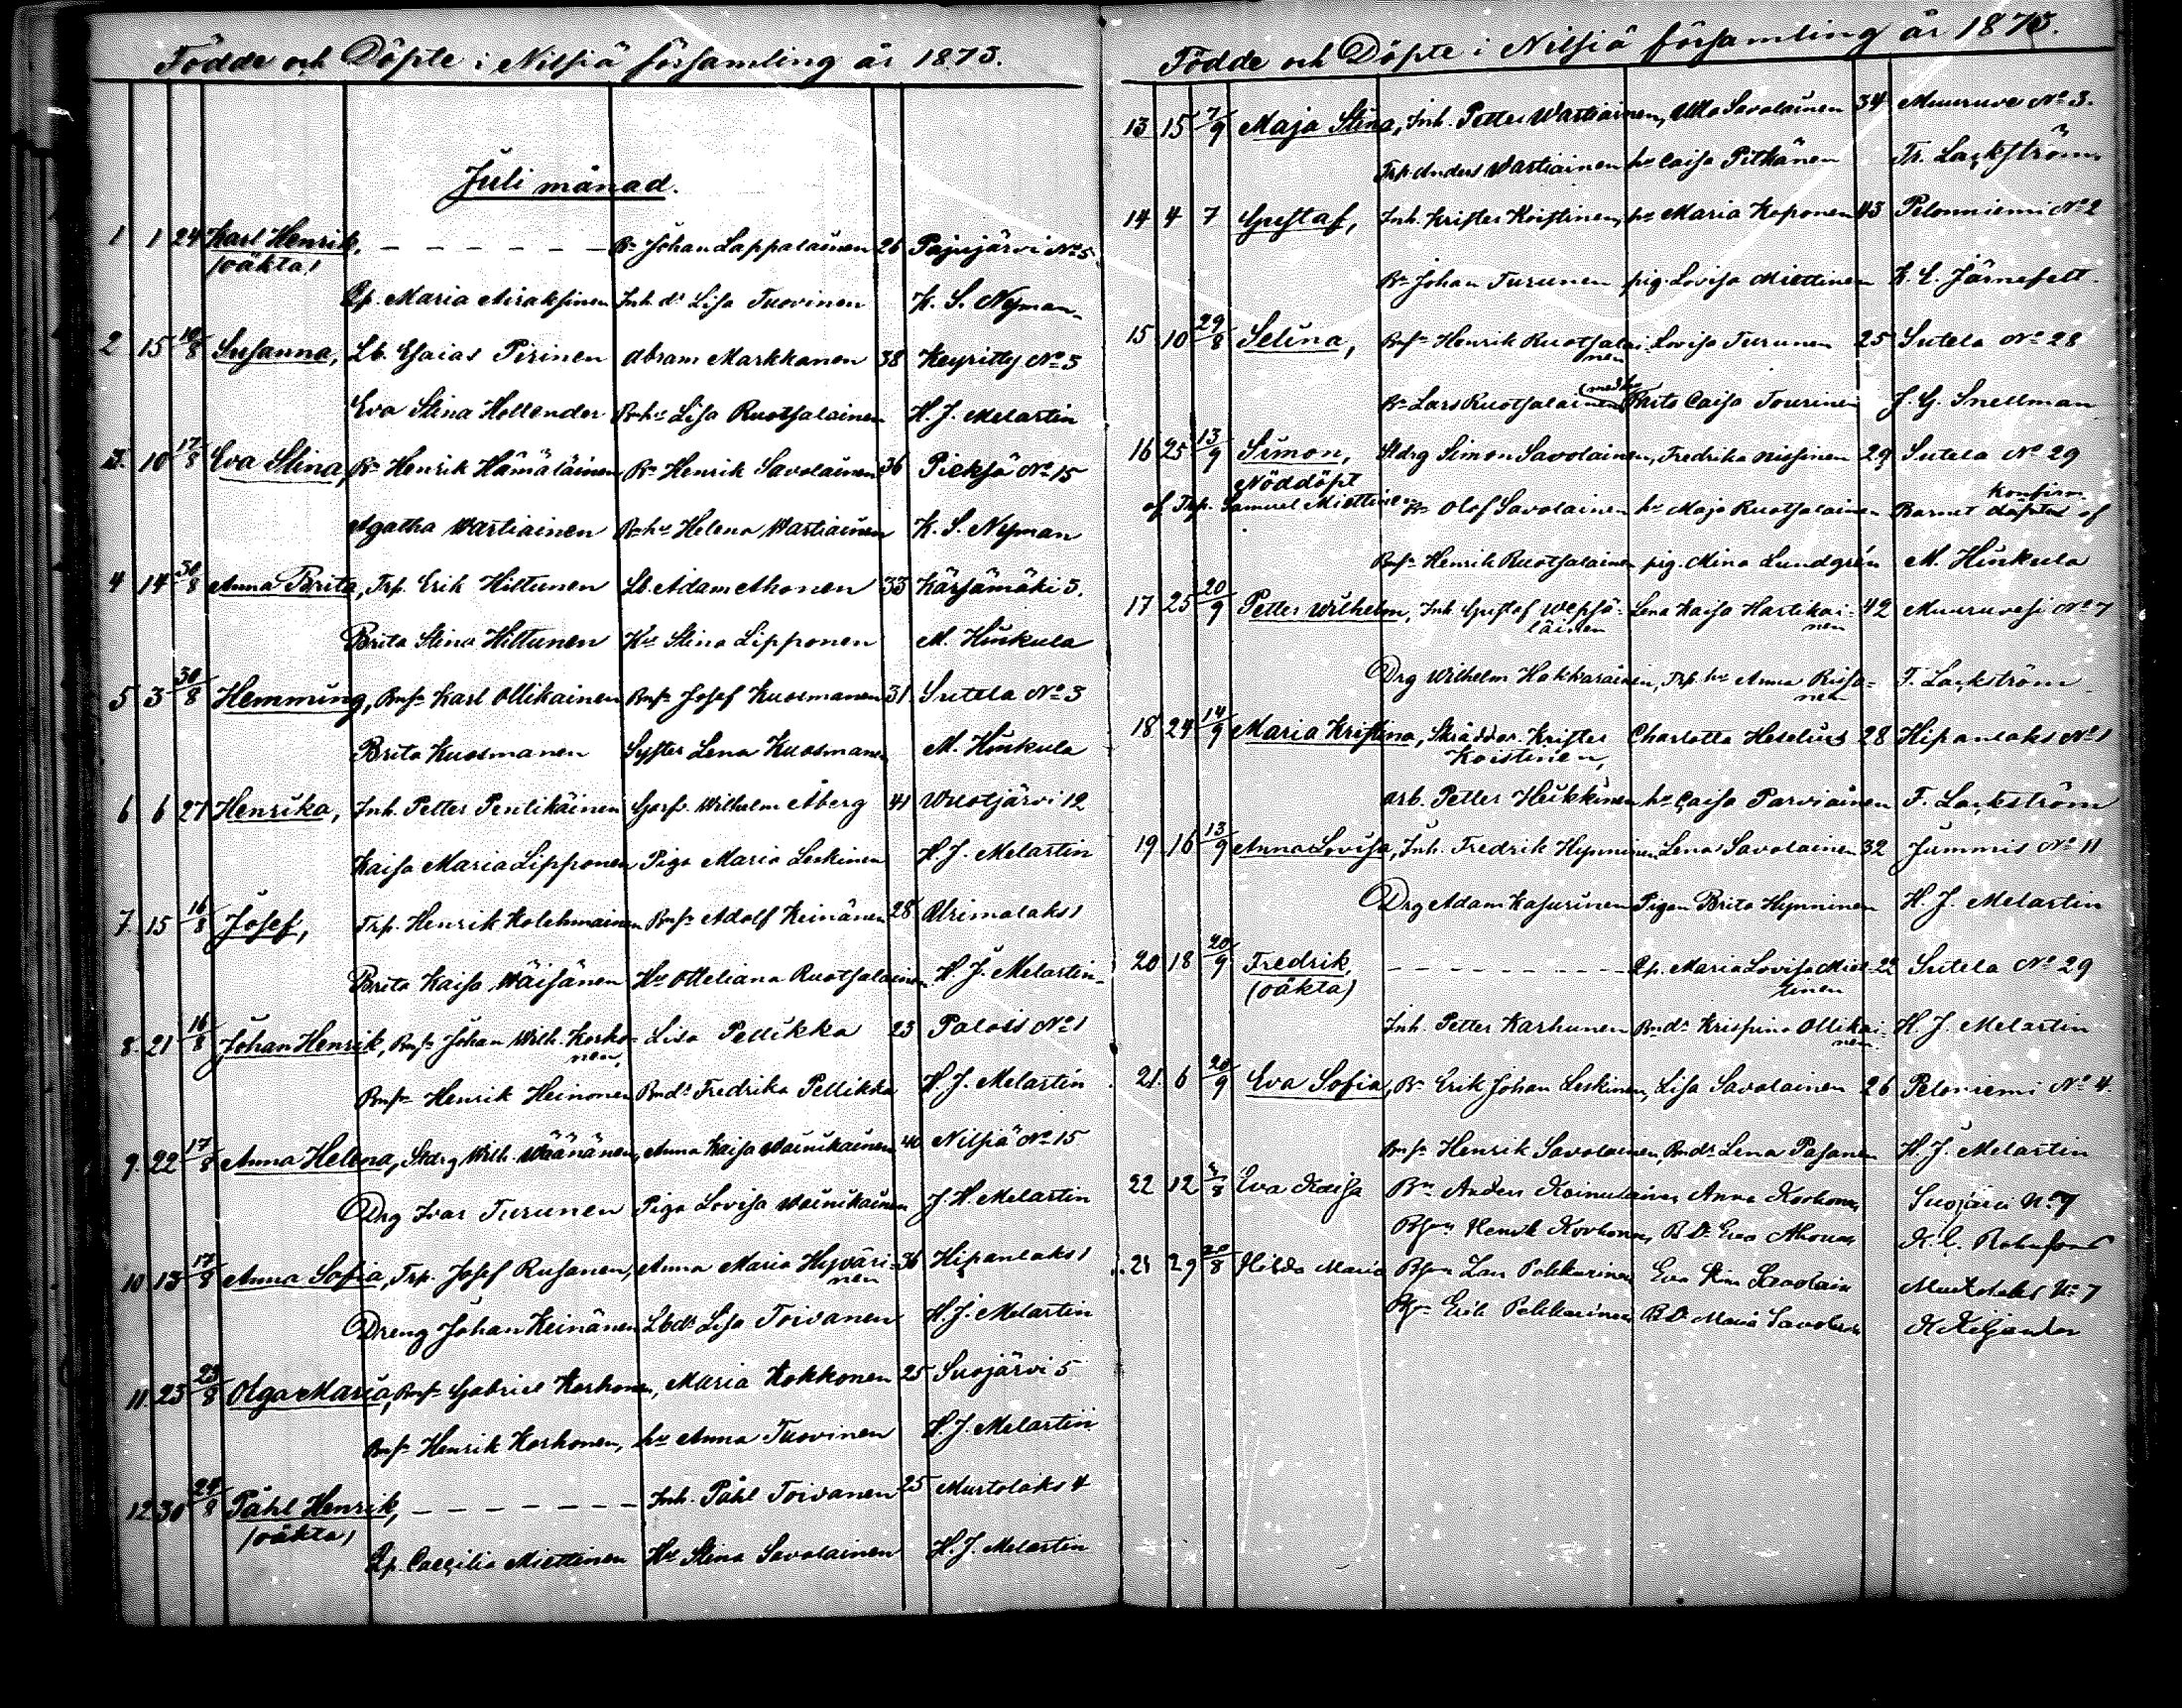 Födde och Döpte i Nilsiä församling år 1875.
Juli månad.
1 1 24 Karl Henrik, — — — — — — — — Bn Johan Lappalainen 26 Pajujärvi No 5
(oäkta)
Qp. Maria Airaksinen Inh. dr Lisa Tuovinen K. S. Nyman
2 15 18/8 Susanna, Lb. Esaias Pirinen Abram Markkanen 38 Keyritty No 3
Eva Stina Hollender Bnhu Lisa Ruotsalainen H. J. Melartin
3. 10 17/8 Eva Stina, Bn Henrik Hämäläinen Bn Henrik Savolainen 36 Pieksä No 15
Agatha Wartiainen Bnhu Helena Wartiainen K. S. Nyman
4 14 30/8 Anna Brita, Trp. Erik Hiltunen Lb. Adam Ahonen 33 Kärsämäki 5.
Brita Stina Hiltunen Hu Stina Lipponen M. Hinkula
5 3 30/8 Hemming, Bnsn Karl Ollikainen Bnsn Josef Kuosmanen 31. Sutela No 3
Brita Kuosmanen Syster Lena Kuosmanen M. Hinkula
6 6 27 Henrika, Inh. Petter Pentikäinen Garfv. Wilhelm Åberg 41 Wuotjärvi 12
Kaisa Maria Lipponen Piga Maria Leskinen H. J. Melartin
7. 15 16/8 Josef, Trp. Henrik Kolehmainen Bnsn Adolf Keinänen 28 Urimalaks 1
Brita Kaisa Wäisänen Hu Otteliana Ruotsalainen H. J. Melartin
8. 21 16/8 Johan Henrik, Bnsn Johan Wilh. Korho- Lisa Pellikka 23 Palois No 1
nen,
Bnsn Henrik Heinonen Bndr Fredrika Pellikka H. J. Melartin
9. 22 17/8 Anna Helena, Stdrg Wilh. Wäänänen, Anna Kaisa Wainikainen 40 Nilsiä No 15
Drg Ivar Turunen Piga Lovisa Wainikainen J. H. Melartin
10. 13 17/8 Anna Sofia, Trp. Josef Rusanen, Anna Maria Hyväri- 36 Hipanlaks 1
nen
Dreng Johan Keinänen Lbdr Lisa Toivanen H. J. Melartin
11. 23 23/8 Olga Maria, Bnsn Gabriel Korhonen, Maria Kokkonen 25 Suojärvi 5
Bnsn Henrik Korhonen, hu Anna Tuovinen H. J. Melartin
12 30 28/8 Påhl Henrik, — — — — — — — Inh. Påhl Toivanen 25 Murtolaks 4
(oäkta)
Qp. Caecilia Miettinen Hu Stina Savolainen H. J. Melartin
Födde och Döpte i Nilsiä församling år 1875.
13 15 7/9 Maja Stina, Inh. Petter Wartiainen, Ulla Savolainen 34 Muuruve No 3.
Trp. Anders Wartiainen hu Caisa Pitkänen Fr. Lackström
14 4 7 Gustaf, Inh. Krister Koistinen, hu Maria Koponen 43 Pelonniemi No 2
Bn Johan Turunen pig. Lovisa Miettinen K. E. Järnefelt
15 10 29/8 Selina, Bnsn Henrik Ruotsalai- Lovisa Turunen 25 Sutela No 28
nen
Bn Lars Ruotsalainen (med hu Brita Caisa Tourinen J. G. Snellman
16 25 13/9 Simon, Stdrg Simon Savolainen, Fredrika Nissinen 29 Sutela No 29
Nöddöpt konfirm.
af Trp. Samuel Miettinen Bn Olof Savolainen hu Maja Ruotsalainen Barnet döptes af
Bnsn Henrik Ruotsalainen pig. Mina Lundgrén M. Hinkula
17 25 20/9 Petter Wilhelm, Inh. Gustaf Wepsä- Lena Kaisa Hartikai- 42 Muuruvesi No 7
läinen nen
Drg Wilhelm Hakkarainen, Trp. hu Anna Risa- F. Lackström
nen
18 24 14/9 Maria Kristina, Skräddar. Krister Charlotta Heselius 28 Hipanlaks No 1
Koistinen,
arb. Petter Heikkinen hu Caisa Parviainen F. Lackström
19 16 13/9 Anna Lovisa, Inh. Fredrik Hynninen Lena Savolainen 32 Jummis No 11
Drg Adam Kasurinen Pigan Brita Hynninen H. J. Melartin
20 18 20/9 Fredrik, — — — — — — — — Qp. Maria Lovisa Miet- 22 Sutela No 29
(oäkta) tinen
Inh. Petter Karhunen Bndr Krispina Ollikai- H. J. Melartin
nen.
21. 6 20/9 Eva Sofia, Bn Erik Johan Leskinen, Lisa Savolainen 26 Peloniemi No 4
Bnsn Henrik Savolainen, Bndr Lena Pasanen H. J. Melartin
22 12 /8 Eva Kaisa Bn Anders Koinulainen Anna Korhonen Suojärvi No 7
Bson Henrik Korhonen B.D. Eva Ahonen K. E.
29 20/8 Hilda Maria Bson Lars Pekkarinen Eva Stina Savolain Murtolaks No 7
Bson Erik Pekkarinen B.D. Maria Savolain K Kiljander